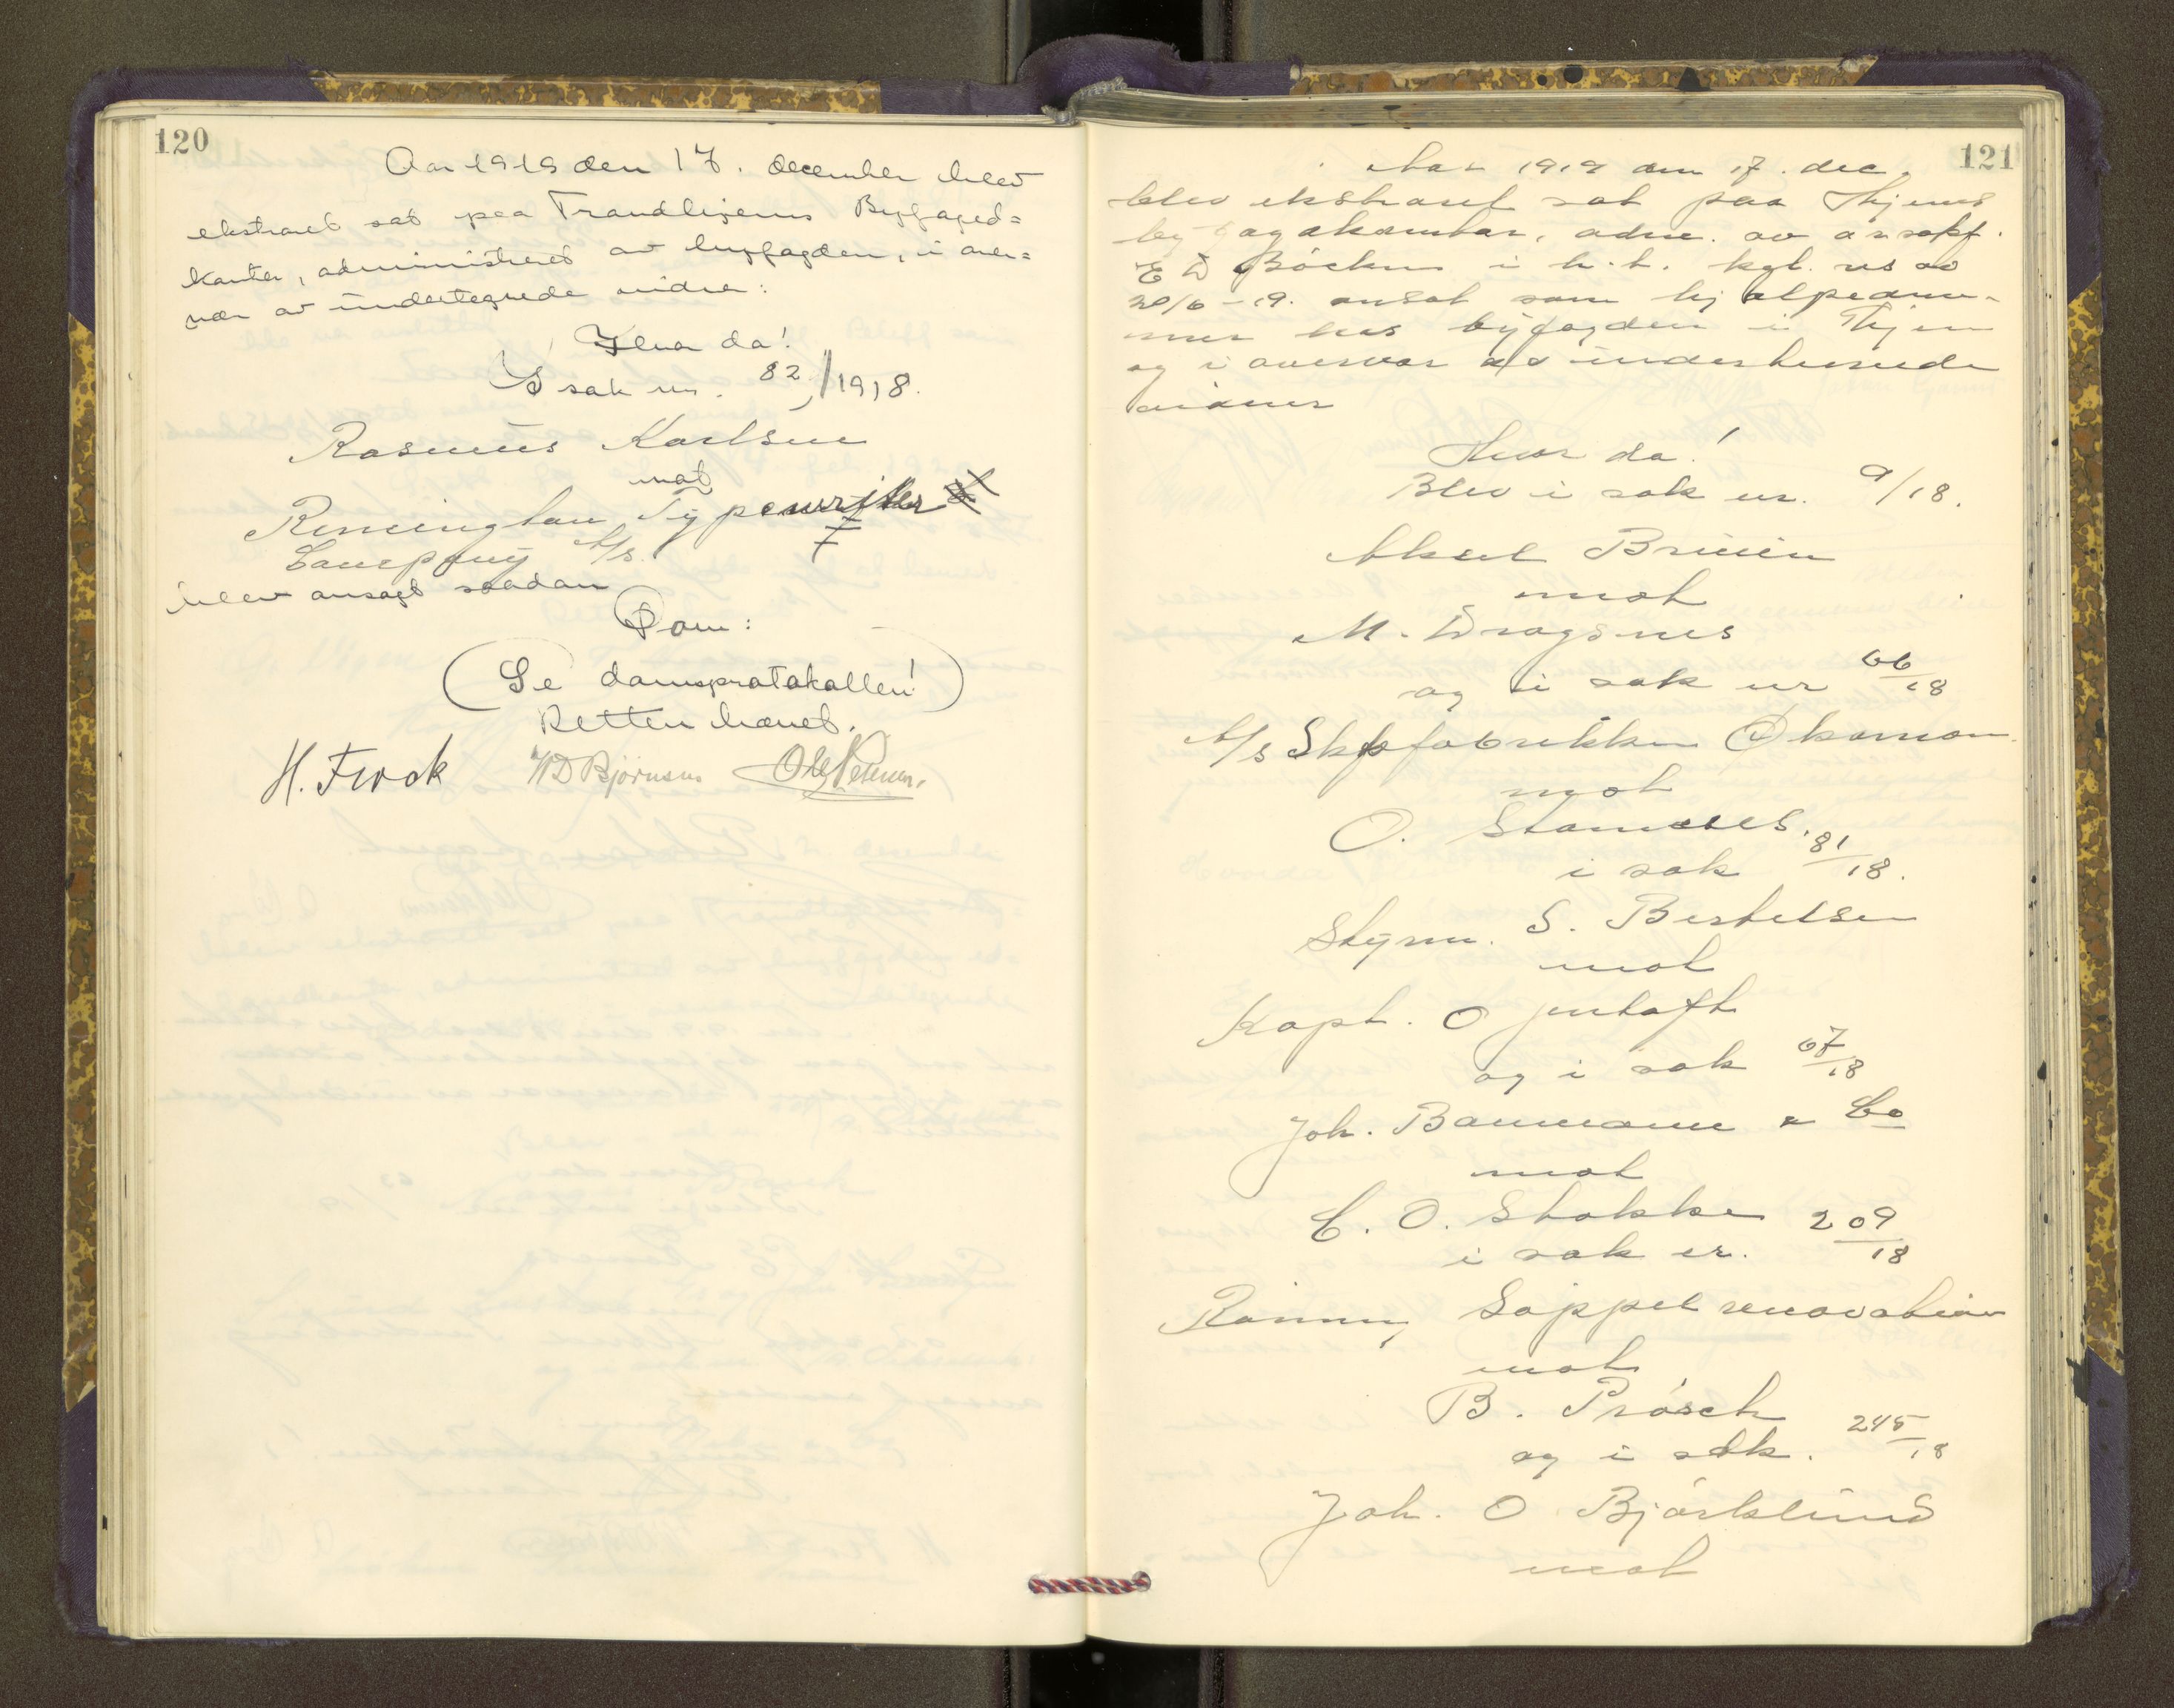 120
Aar 1919 den 17. december blev
ekstraret sat paa Trondhjems Byfoged=
kontor, administreret av byfogden, i over=
vær av undertegnede vidner:
Hvor da!
I sak nr. 82/1918.
Rasmus Karlsen
mot
Remington Typewriter
Company A/s.
blev avsagt saadan
Dom:
(Se domsprotokollen!)
Retten hævet.
H. Frook WD Bjørnsen Ole Petersen.
121
Aar 1919 den 17. dec.
blev ekstraret sat paa Thjems
byfogdkontor, adm. av
E D Böckm i h.t. kgl. res av
20/6-19. ansat som hjælpedom-
mer hos byfogden i Thjem
og i overvær av undertegnede
vidner
Hvor da!
Blev i sak nr. 9/18.
Aksel Bruun
mot
M. Dragsnes
og i sak nr 66/18
A/s Skofabrikken Økonom
mot
O. Stamnes.
i sak 81/18.
Styrm. S. Bertelsen
mot
Kapt. O Jentoft
og i sak 67/18
Joh. Baumann & Co
mot
C. O. Stokke
i sak nr. 209/18
Ranum, Søppel renovation
mot
B. Prösch
og i sak. 245/18
Joh. O Bjørklund
mot